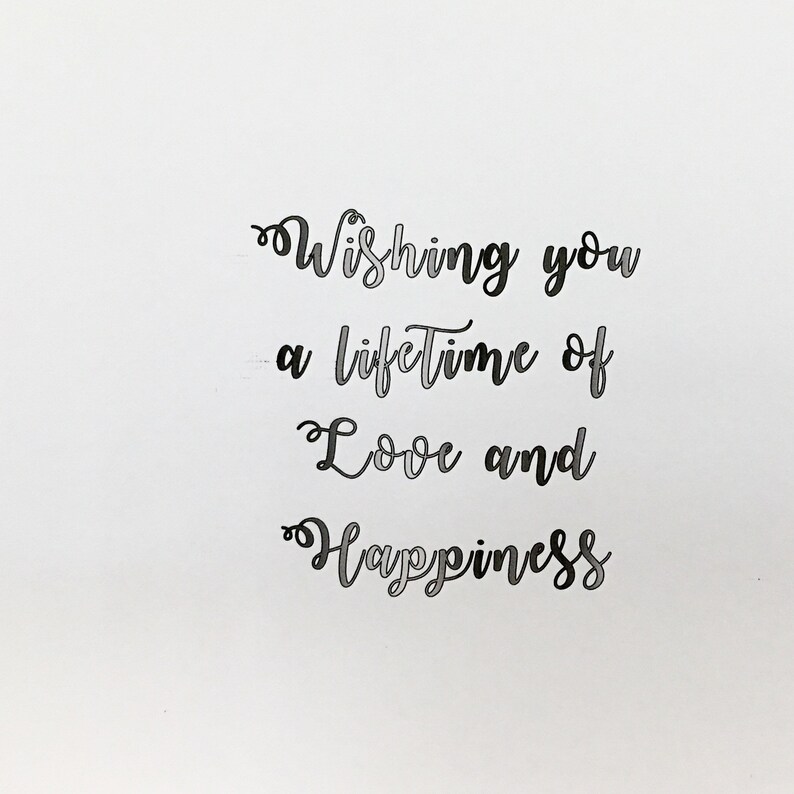 Wishing you
a lifeTime of
Love and
Happiness